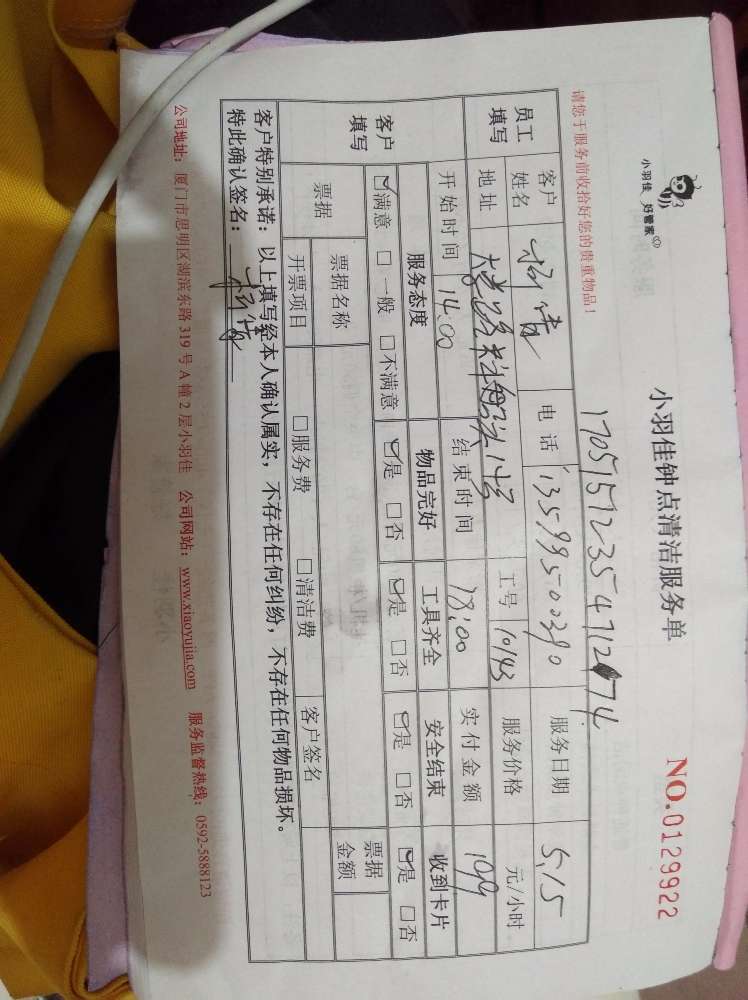 小羽佳 好管家
小羽佳钟点清洁服务单
NO.0129922
请您于服务前收拾好您的贵重物品！
17051512354712 74
员工填写
客户姓名
电话 13599500390
服务日期 5.15
地址
工号 10143
服务价格 元/小时
开始时间 14:00
结束时间 18:00
实付金额 109
客户填写
服务态度 物品完好 工具齐全 安全结束 收到卡片
☑满意 □一般 □不满意 ☑是 □否 ☑是 □否 ☑是 □否 ☑是 □否
票据 票据名称 客户签名 票据金额
开票项目 □服务费 □清洁费
客户特别承诺：以上填写经本人确认属实，不存在任何纠纷，不存在任何物品损坏。
特此确认签名：
公司地址：厦门市思明区湖滨东路 319 号 A 幢 2 层小羽佳 公司网站：www.xiaoyujia.com 服务监督热线：0592-5888123